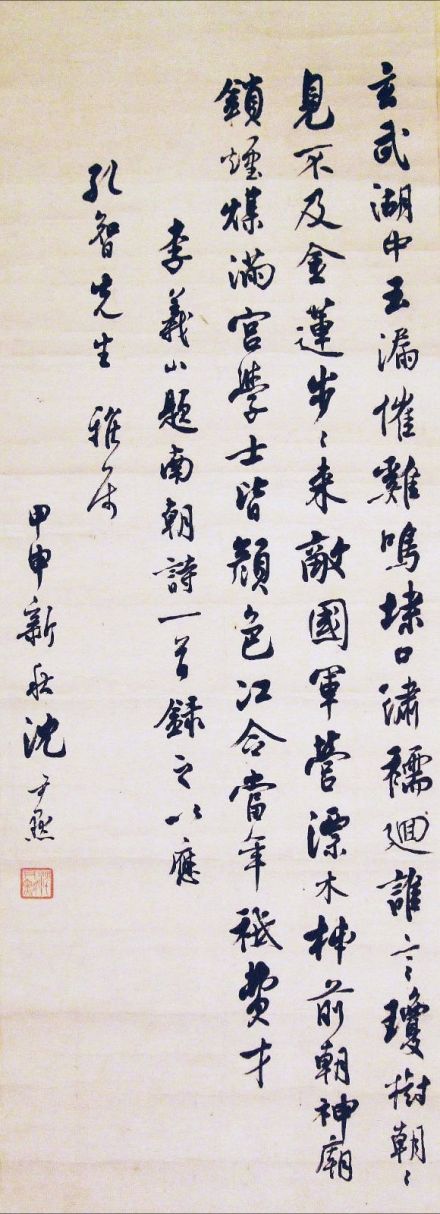 玄武湖中玉漏催雞鳴埭口繡襦迴誰言瓊樹朝〻
見不及金蓮步〻来敵國軍營漂木柹前朝神廟
鎖煙煤滿宮學士皆顔色江令當年祗費才
李義山題南朝詩一首録之以應
孔智先生 雅属
甲申新秋沈尹默